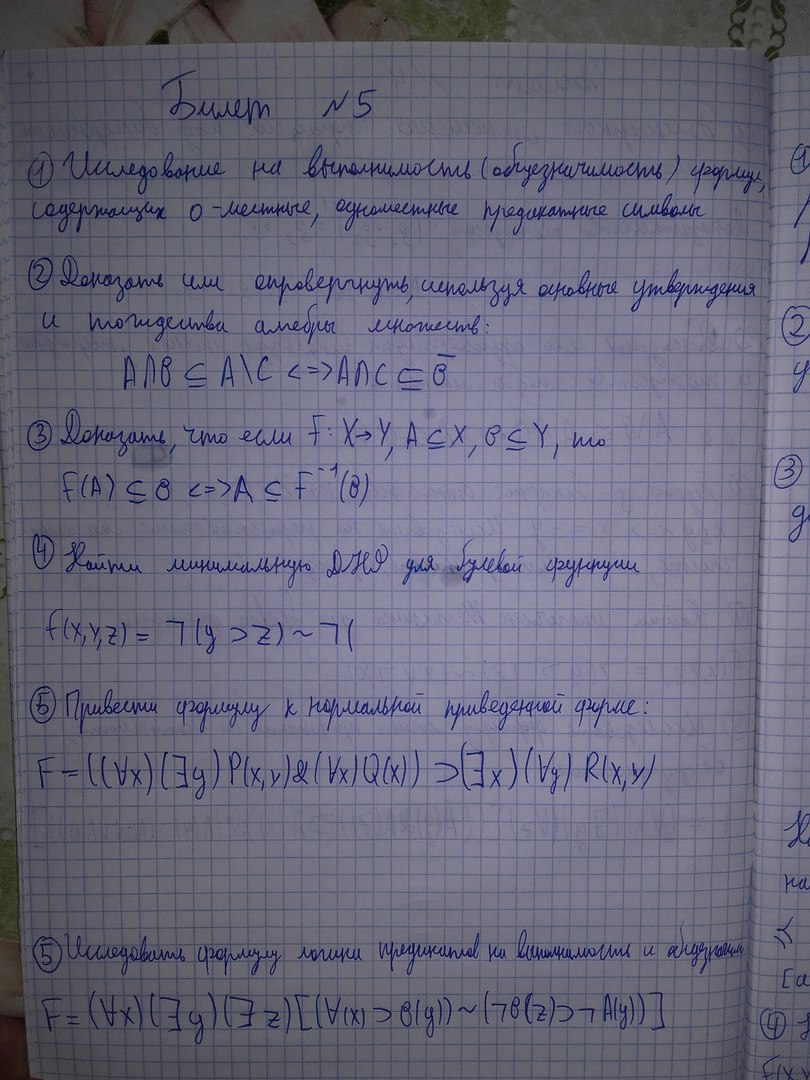 Билет №5
① Исследование на выполнимость (общезначимость) формул,
содержащих 0-местные, одноместные предикатные символы
② Доказать или опровергнуть, используя основные утверждения
и тождества алгебры множеств:
A∩B ⊆ A\C <=> A∩C ⊆ B̅
③ Доказать, что если F: X→Y, A ⊆ X, B ⊆ Y, то
F(A) ⊆ B <=> A ⊆ F⁻¹(B)
④ Найти минимальную ДНФ для булевой функции
f(x,y,z) = ¬(y ⊃ z) ~ ¬(
⑤ Привести формулу к нормальной приведенной форме:
F = ((∀x)(∃y) P(x,y) & (∀x) Q(x)) ⊃ (∃x)(∀y) R(x,y)
⑤ Исследовать формулу логики предикатов на выполнимость и
F = (∀x)(∃y)(∃z)[(A(x) ⊃ B(y)) ~ (¬B(z) ⊃ ¬A(y))]
①
②
у
③
на
④